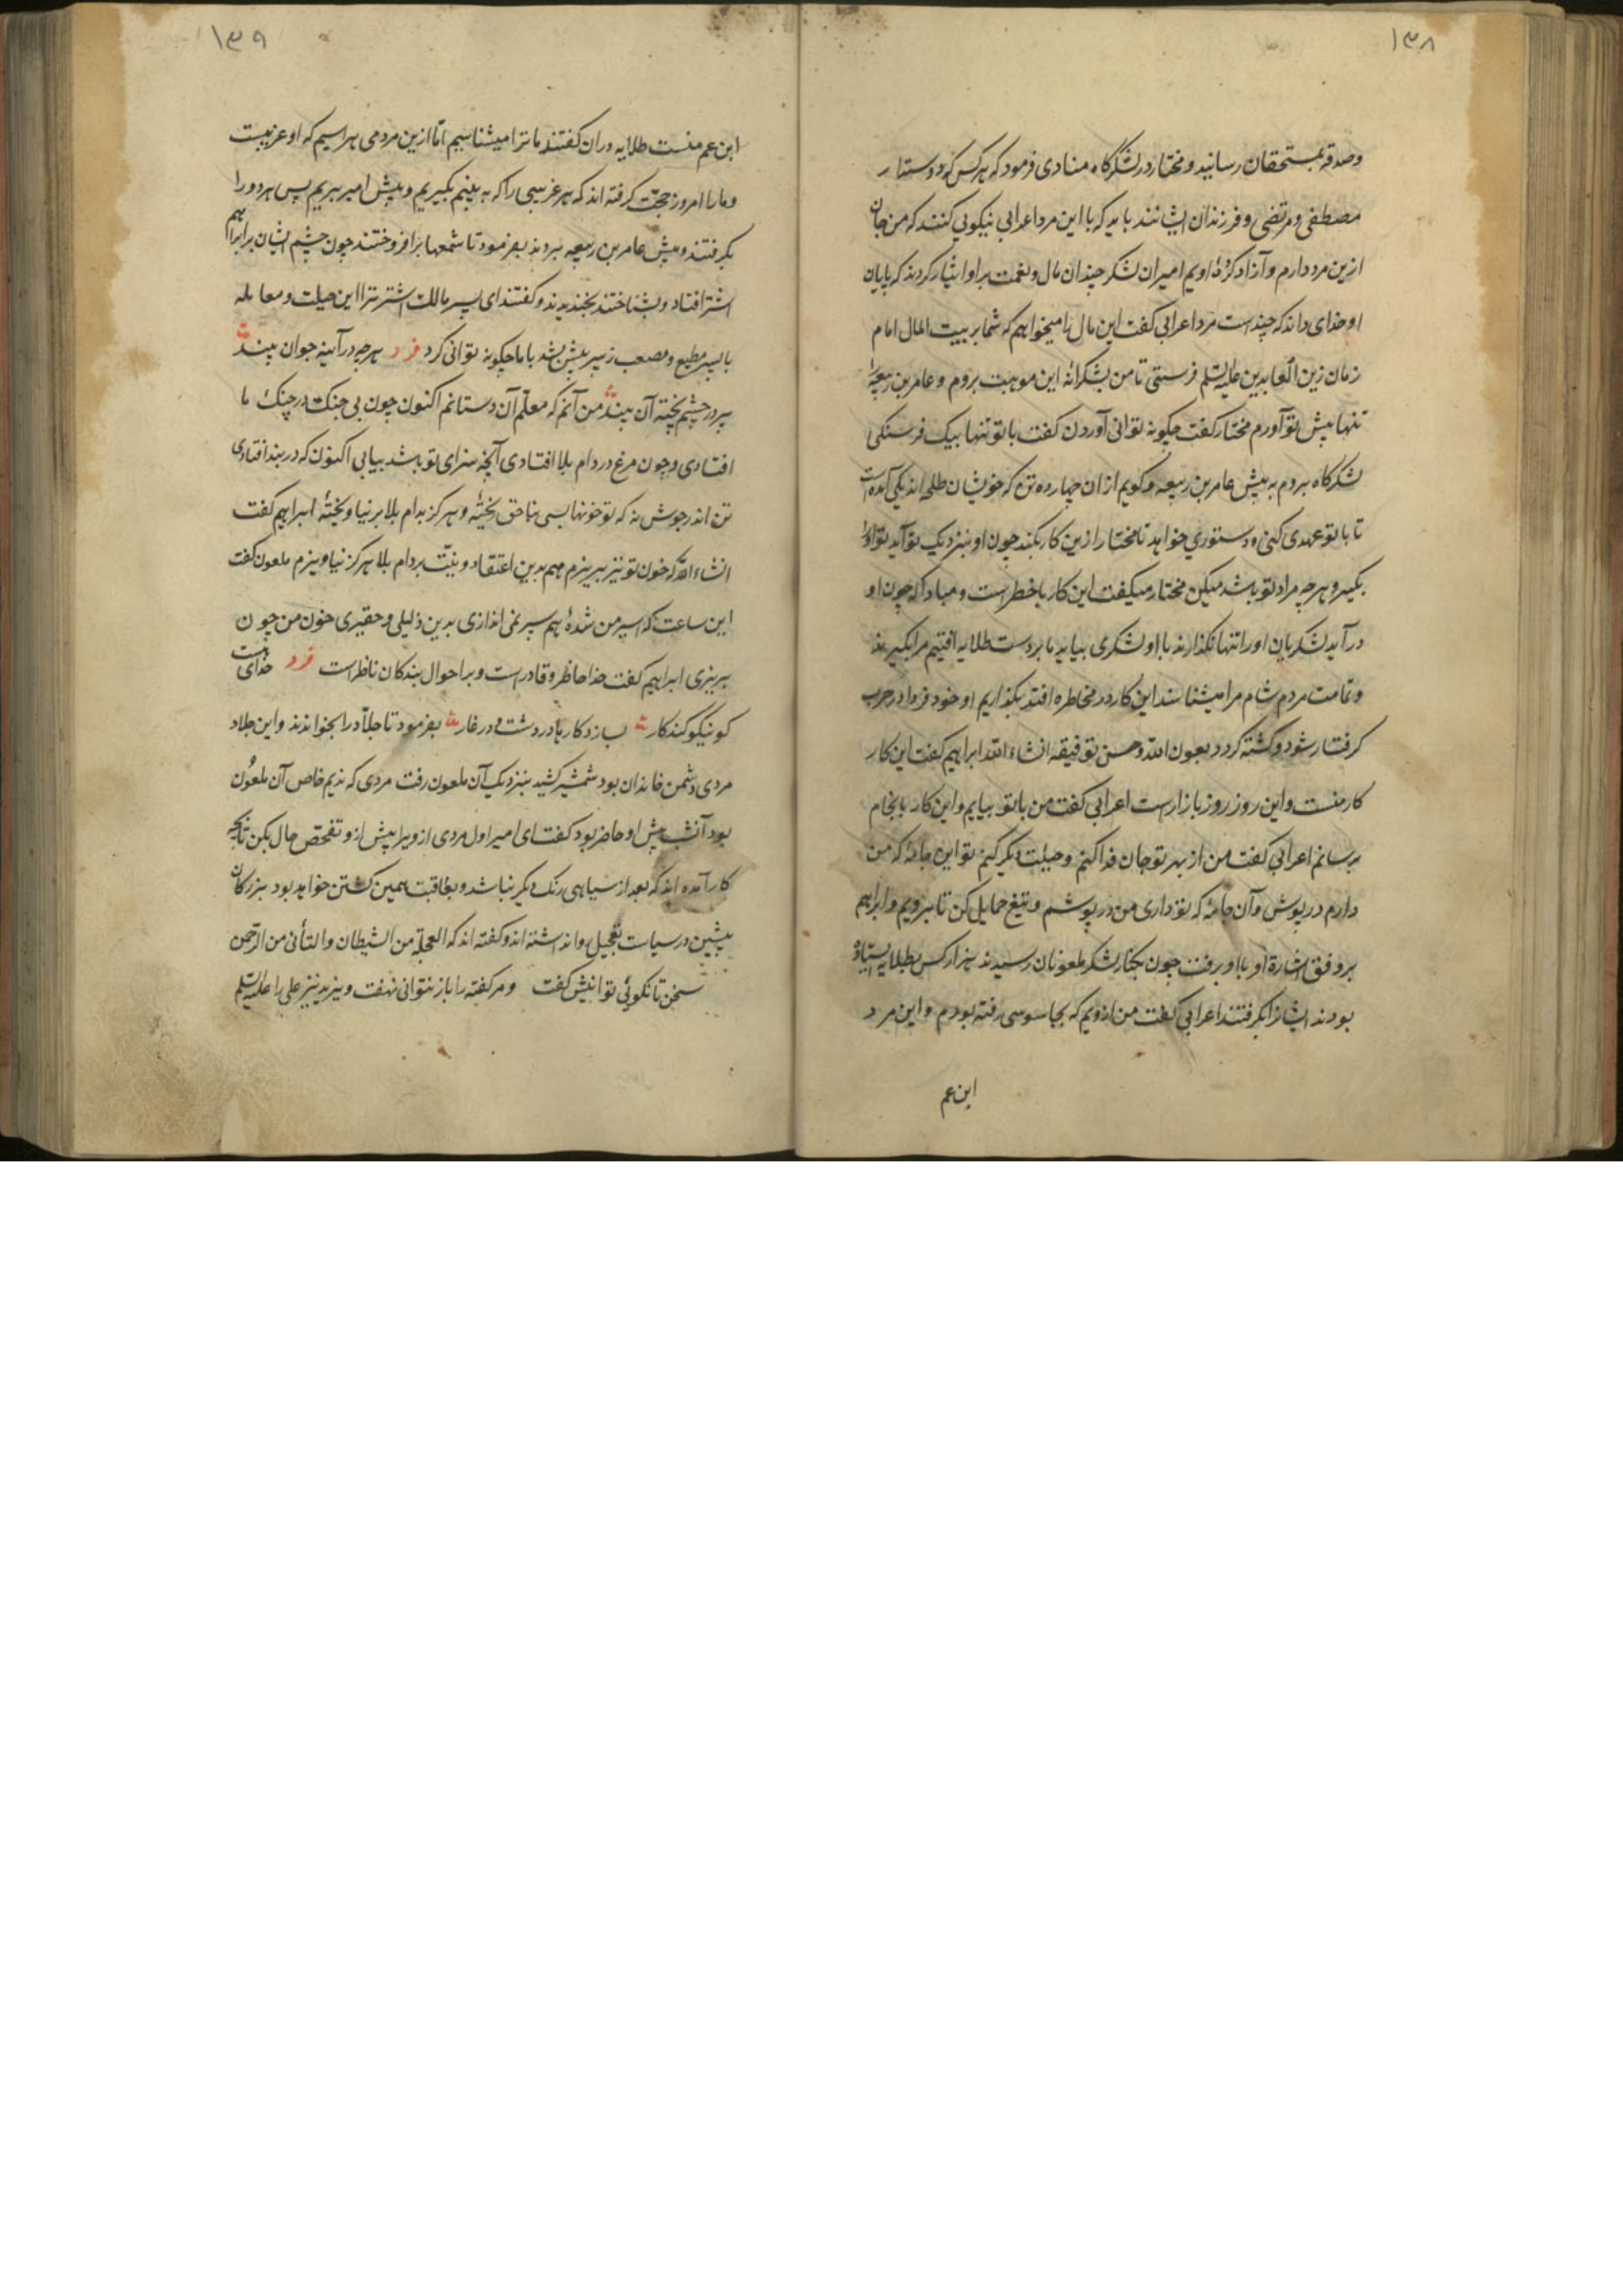 ۱۳۸
وصدقه بمستحقان رسانید و مختار در لشکرگاه منادی فرمود که هر کس که دوستدار
مصطفی و مرتضی و فرزندان ایشانند باید که با این مرد اعرابی نیکویی کنند که من جان
ازین مرد دارم و آزاد کردهٔ اویم امیران لشکر چندان مال و نعمت براو ایثار کردند که پایان
او خدای داند که چنداست مرد اعرابی کفت این مال را میخواهم که شما بر بیت المال امام
زمان زین العابدین علیه السلم فرستی تا من بشکرانهٔ این موهبت بروم و عامر بن ربیعه را
تنها پیش تو آورم مختار کفت چکونه توانی آوردن کفت با تو تنها بیک فرسنکی
لشکرکاه بروم به پیش عامر بن ربیعه و کویم ازان چهارده تن که خویشان طلحه اند یکی آمده است
تا با تو عهدی کنی و دستوری خواهد تا مختار ازین کار بکند چون او بنزدیک تو آید تو او را
بکیر و هر چه مراد تو باشد میکن مختار میکفت این کار با خطر است و مبادا که چون او
درآید لشکریان او را تنها نکذارند با او لشکری بیاید ما بر دست طلایه افتیم مرا بکیرند
و تمامت مردم شام مرا میشناسند این کار در مخاطره افتد بکذاریم او خود فردا در حرب
کرفتار شود و کشته کردد بعون الله و حسن توفیقه انشاء الله ابراهیم کفت این کار
کار منست و این روز روز بازار است اعرابی کفت من با تو بیایم و این کار بانجام
برسانم اعرابی کفت من از بهر تو جان فدا کنم و حیلت دیکر کنیم تو این جامهٔ که من
دارم درپوش و آن جامهٔ که تو داری من درپوشم و تیغ حمایل کن تا برویم و ابراهیم
بر وفق اشارة او با او برفت چون بکنار لشکر ملعونان رسیدند هزار کس بطلایه ایستاده
بودند ایشانرا بکرفتند اعرابی کفت من ازویم که بجاسوسی رفته بودم و این مرد
ابن عم
۱۳۹
ابن عم منست طلایه دران کفتند ما ترا میشناسیم اما ازین مرد می هراسیم که او غریبست
و ما را امروز حجت کرفته اند که هر غریبی را که به بینیم بکیریم و پیش امیر بریم پس هر دو را
بکرفتند و پیش عامر بن ربیعه بردند بفرمود تا شمعها برافروختند چون چشم ایشان بر ابراهیم
اشتر افتاد و بشناختند بخندیدند و کفتند ای پسر مالک اشتر ترا این حیلت و معامله
با پسر مطیع و مصعب زبیر پیش شد با ما چکونه توانی کرد فرد هر چه در آینه جوان بیند
پیر در چشم پخته آن بیند من آنم که معلم آن دستانم اکنون چون بی جنک در چنک ما
افتادی و چون مرغ در دام بلا افتادی آنچه سزای تو باشد بیابی اکنون که در بند افتادی
تن اندر جوش نه که تو خونها بسی بناحق ریختهٔ و هرکز بدام بلا برنیاویختهٔ ابراهیم کفت
انشاء الله که خون تو نیز بریزم و هم بدین اعتقاد و نیت بر دام بلا هرکز نیاویزم ملعون کفت
این ساعت که اسیر من شدهٔ هم سپر نمی اندازی بدین ذلیلی و حقیری خون من چون
بریزی ابراهیم کفت خدا حاظر و قادر است و بر احوال بندکان ناظر است فرد خدای است
کو نیکو کند کار بسازد کارها در دشت و در غار بفرمود تا جلاد را بخواندند و این جلاد
مردی دشمن خاندان بود شمشیر کشید بنزدیک آن ملعون رفت مردی که ندیم خاص آن ملعون
بود آنشب پیش او حاضر بود کفت ای امیر اول مردی ازو بپرا پیش ازو تفحص حال بکن تا بچه
کار آمده اند که بعد از سیاهی رنک دیکر نباشد و بعاقبت همین کشتن خواهد بود بزرکان
پیشین در سیاست تعجیل روا نداشته اند و کفته اند که العجلة من الشیطان والتأنی من الرحمن
سخن تا نکوئی توانیش کفت و مر کفته را باز نتوانی نهفت و نیز یزید نیز علی را علیه السلم